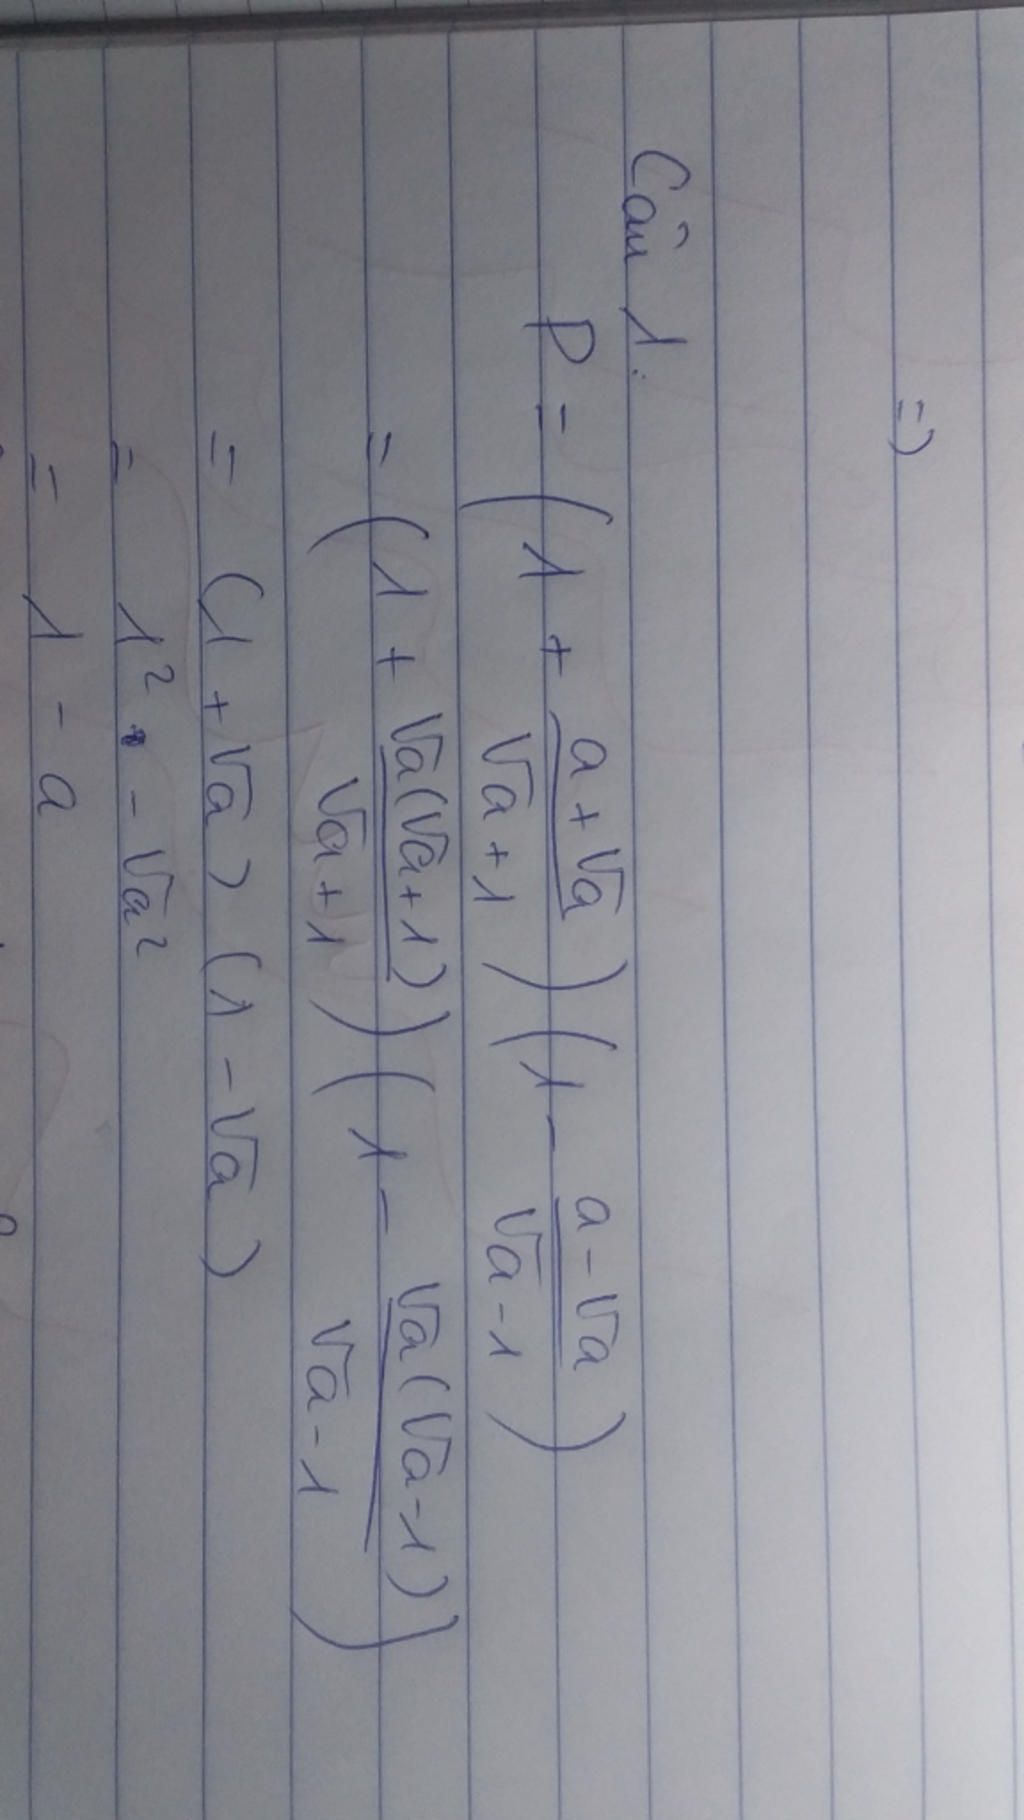 =)
Câu 1.
P = (1 + \frac{a + √a}{√a + 1}) (1 - \frac{a - √a}{√a - 1})
= (1 + \frac{√a(√a + 1)}{√a + 1}) (1 - \frac{√a(√a - 1)}{√a - 1})
= (1 + √a) (1 - √a)
= 1² - √a²
= 1 - a